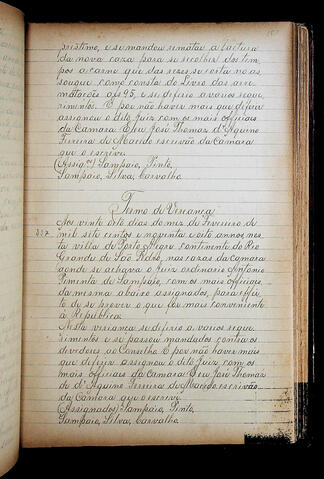 prestimo, e se mandou rematar a factura
da nova caza para se recolher dos tem
pos a carne que das rezes se corta no as
sougue como consta do Livro das arre
matações af. 95, e se diferio a varios reque
rimentos. E por não haver mais que diferir
assignou o dito Juiz com os mais officiais
da Camara. E eu José Thomaz d'Aquino
Ferreira de Macedo escrivão da Camara
que o escrevi.
(Assig.os) Sampaio, Pinto,
Sampaio, Silva, Carvalho
Termo de Vriança
Aos vinte oito dias do mez de Fevereiro de
mil sete centos e noventa e oito annos, nes
ta villa de Porto Alegre, Continente do Rio
Grande de São Pedro, nas cazas da camara
aonde se achava o Juiz ordinario Antonio
Pimenta de Sampaio, com os mais officiais
da mesma abaixo assignados, para effei
to de se prover o que for mais conveniente
á Republica.
Nesta veriança se diferio a varios reque
rimentos e se passou mandados contra os
devedores ao Conselho. E por não haver mais
que diferir assignou o dito Juiz, com os
mais officiais da Camara. E eu José Thomaz
de d'Aquino Ferreira de Macedo, escrivão
da Camara que o escrevi.
(Assignados) Sampaio, Pinto,
Sampaio, Silva, Carvalho